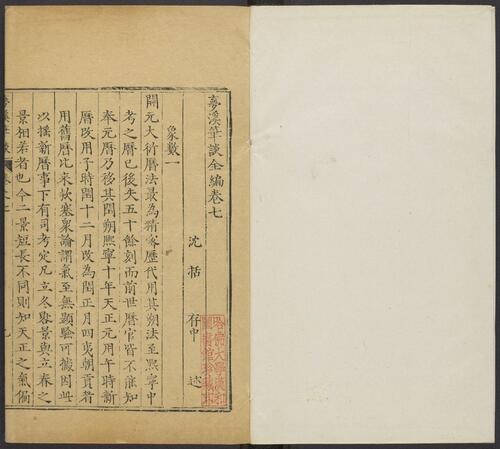 夢溪筆談全編卷七
沈括 存中 述
象數一
開元大衍曆法最為精密歷代用其朔法至熙寧中
考之曆已後天五十餘刻而前世曆官皆不能知
奉元曆乃移其閏朔熙寧十年天正元用午時新
曆改用子時閏十二月改為閏正月四夷朝貢者
用舊曆比來欵塞衆論謂氣至無顯驗可據因此
以摇新曆事下有司考定凡立冬晷景與立春之
景相若者也今二景短長不同則知天正之氣偏